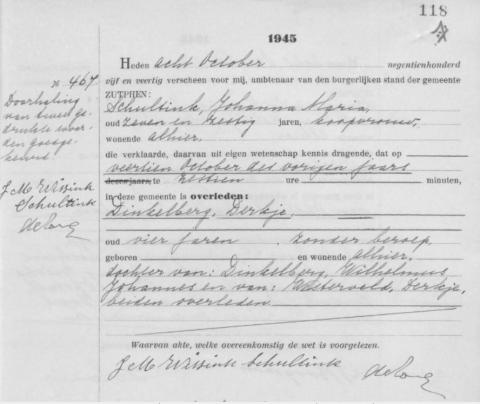 118
1945
Heden acht October negentienhonderd
vijf en veertig verscheen voor mij, ambtenaar van den burgerlijken stand der gemeente
ZUTPHEN:
Schultink, Johanna Maria,
oud zeven en zestig jaren, koopvrouw,
wonende alhier,
die verklaarde, daarvan uit eigen wetenschap kennis dragende, dat op
veertien October des vorigen jaars
dezes jaars, te zestien ure minuten,
in deze gemeente is overleden:
Dinkelberg, Derkje,
oud vier jaren zonder beroep,
geboren en wonende alhier,
dochter van: Dinkelberg, Wilhelmus
Johannes en van: Westerveld, Derkje,
beiden overleden
Waarvan akte, welke overeenkomstig de wet is voorgelezen.
J M Wissink Schultink
de Jong
No 467
Doorhaling
van twee ge-
drukte woor-
den goedge-
keurd.
J M Wissink
Schultink
de Jong